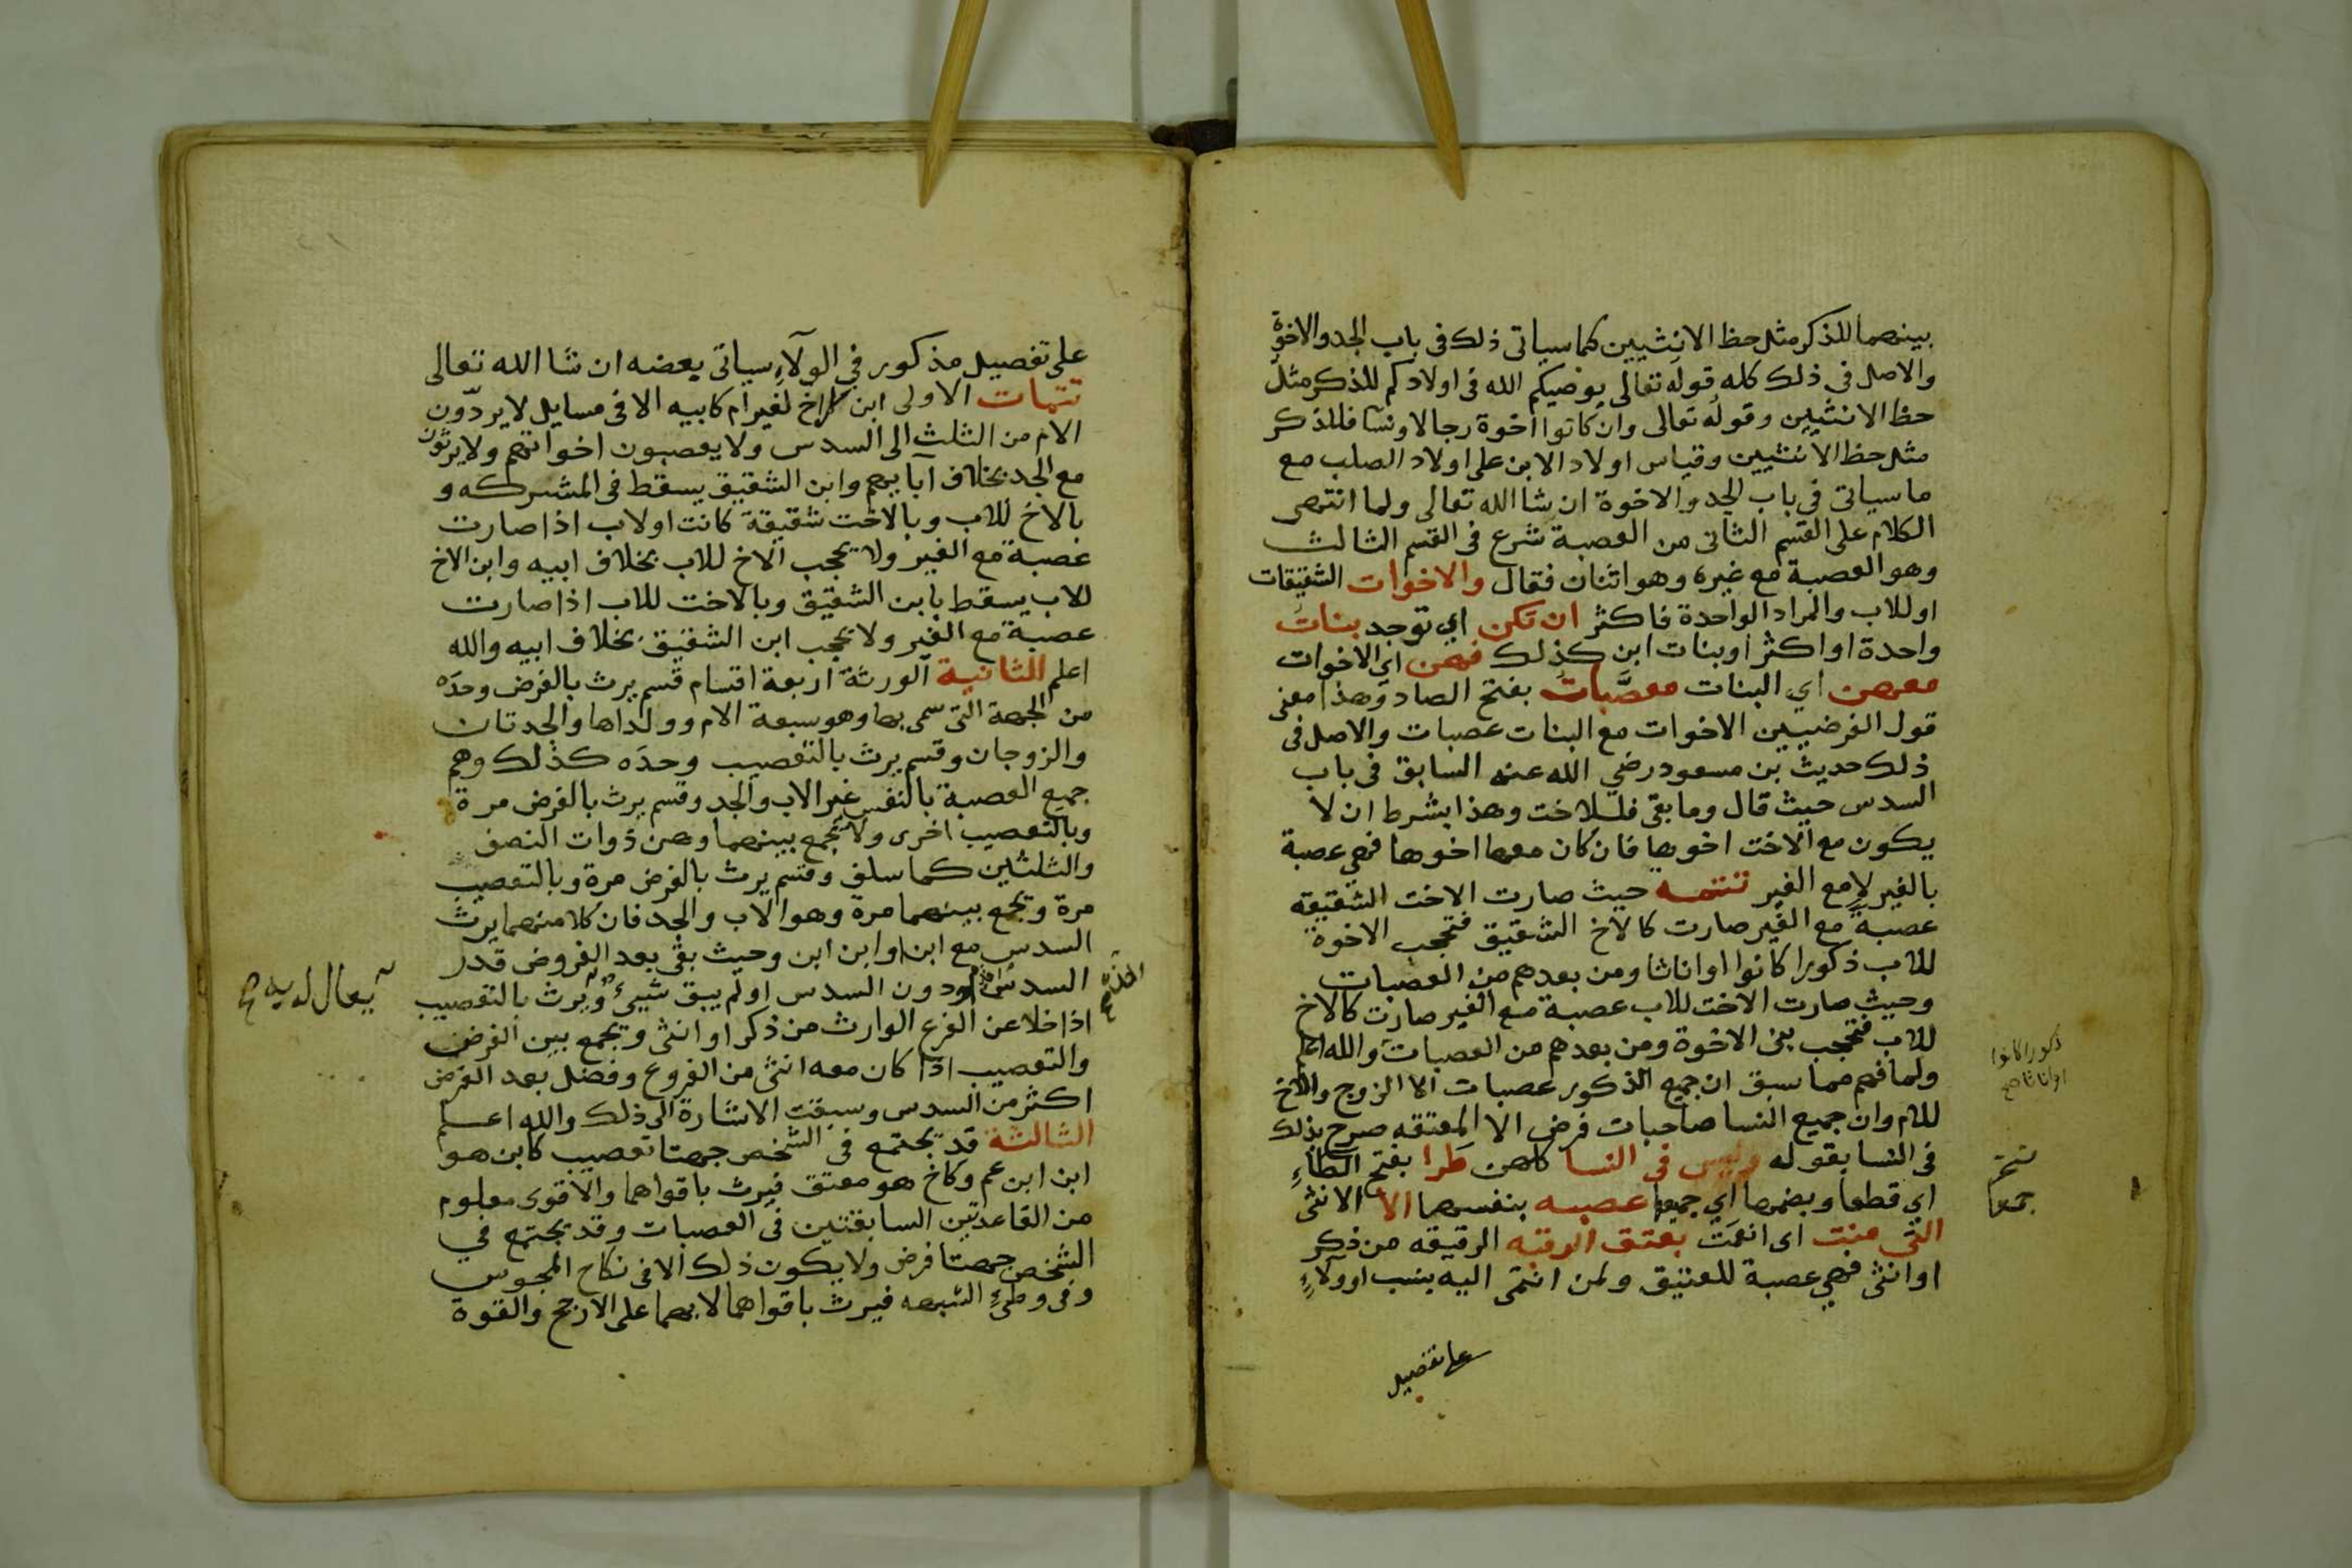 بينهما للذكر مثل حظ الانثيين كما سياتى ذلك فى باب الجد والاخوة
والاصل فى ذلك كله قوله تعالى يوصيكم الله فى اولادكم للذكر مثل
حظ الانثيين وقوله تعالى وان كانوا اخوة رجالا ونسا فللذكر
مثل حظ الانثيين وقياس اولاد الابن على اولاد الصلب مع
ما سياتى في باب الجد والاخوة ان شا الله تعالى ولما انتهى
الكلام على القسم الثانى من العصبة شرع فى القسم الثالث
وهو العصبة مع غيره وهو اثنان فقال والاخوات الشقيقات
او للاب والمراد الواحدة فاكثر ان تكن اي توجد بنات
واحدة او اكثر او بنات ابن كذلك فهن اي الاخوات
معهن اي البنات معصَّبات بفتح الصاد وهذا معنى
قول الفرضيين الاخوات مع البنات عصبات والاصل فى
ذلك حديث بن مسعود رضي الله عنه السابق فى باب
السدس حيث قال وما بقى فللاخت وهذا بشرط ان لا
يكون مع الاخت اخوها فان كان معها اخوها فهي عصبة
بالغير لا مع الغير تتمه حيث صارت الاخت الشقيقة
عصبة مع الغير صارت كالاخ الشقيق فتحجب الاخوة
للاب ذكورا كانوا او اناثا ومن بعدهم من العصبات
وحيث صارت الاخت للاب عصبة مع الغير صارت كالاخ
للاب فتحجب بنى الاخوة ومن بعدهم من العصبات والله اعلم
ولما فهم مما سبق ان جميع الذكور عصبات الا الزوج والاخ
للام وان جميع النسا صاحبات فرض الا المعتقه صرح بذلك
فى النسا بقوله وليس فى النسا كلهن طرا بفتح الطاءِ
اي قطعا وبضمها اي جميعا عصبه بنفسها الا الانثى
التى منت اى انعمَت بعتق الرقبه الرقيقه من ذكر
او انثى فهي عصبة للعتيق ولمن انتمى اليه بنسب او ولاءٍ
على تفصيل
ذكورا كانوا
او اناثا صح
جميعا
على تفصيل مذكور في الولاءِ سياتى بعضه ان شا الله تعالى
تتمات الاولى ابن الاخ لغير ام كابيه الا فى مسايل لا يردّون
الام من الثلث الى السدس ولا يعصبون اخواتهم ولا يرثون
مع الجد بخلاف آبايهم وابن الشقيق يسقط فى المشركه و
بالاخ للاب وبالاخت شقيقة كانت او لاب اذا صارت
عصبة مع الغير ولا يحجب الاخ للاب بخلاف ابيه وابن الاخ
للاب يسقط بابن الشقيق وبالاخت للاب اذا صارت
عصبة مع الغير ولا يحجب ابن الشقيق بخلاف ابيه والله
اعلم الثانية الورثة اربعة اقسام قسم يرث بالفرض وحده
من الجهة التى سمى بها وهو سبعة الام وولداها والجدتان
والزوجان وقسم يرث بالتعصيب وحده كذلك وهم
جميع العصبة بالنفس غير الاب والجد وقسم يرث بالفرض مرة
وبالتعصيب اخرى ولا يجمع بينهما وهن ذوات النصف
والثلثين كما سلف وقسم يرث بالفرض مرة وبالتعصيب
مرة ويجمع بينهما مرة وهو الاب والجد فان كلا منهما يرث
السدس مع ابن او ابن ابن وحيث بقى بعد الفروض قدر
السدس او دون السدس او لم يبق شيىء ويرث بالتعصيب
اذا خلا عن الفرع الوارث من ذكر او انثى ويجمع بين الفرض
والتعصيب اذا كان معه انثى من الفروع وفضل بعد الفرض
اكثر من السدس وسبقت الاشارة الى ذلك والله اعلم
الثالثة قد يجتمع فى الشخص جهتا تعصيب كابن هو
ابن ابن عم وكاخ هو معتق فيرث باقواهما والاقوى معلوم
من القاعدتين السابقتين فى العصبات وقد يجتمع في
الشخص جهتا فرض ولا يكون ذلك الا فى نكاح المجوس
وفى وطىءِ الشبهه فيرث باقواهما لا بهما على الارجح والقوة